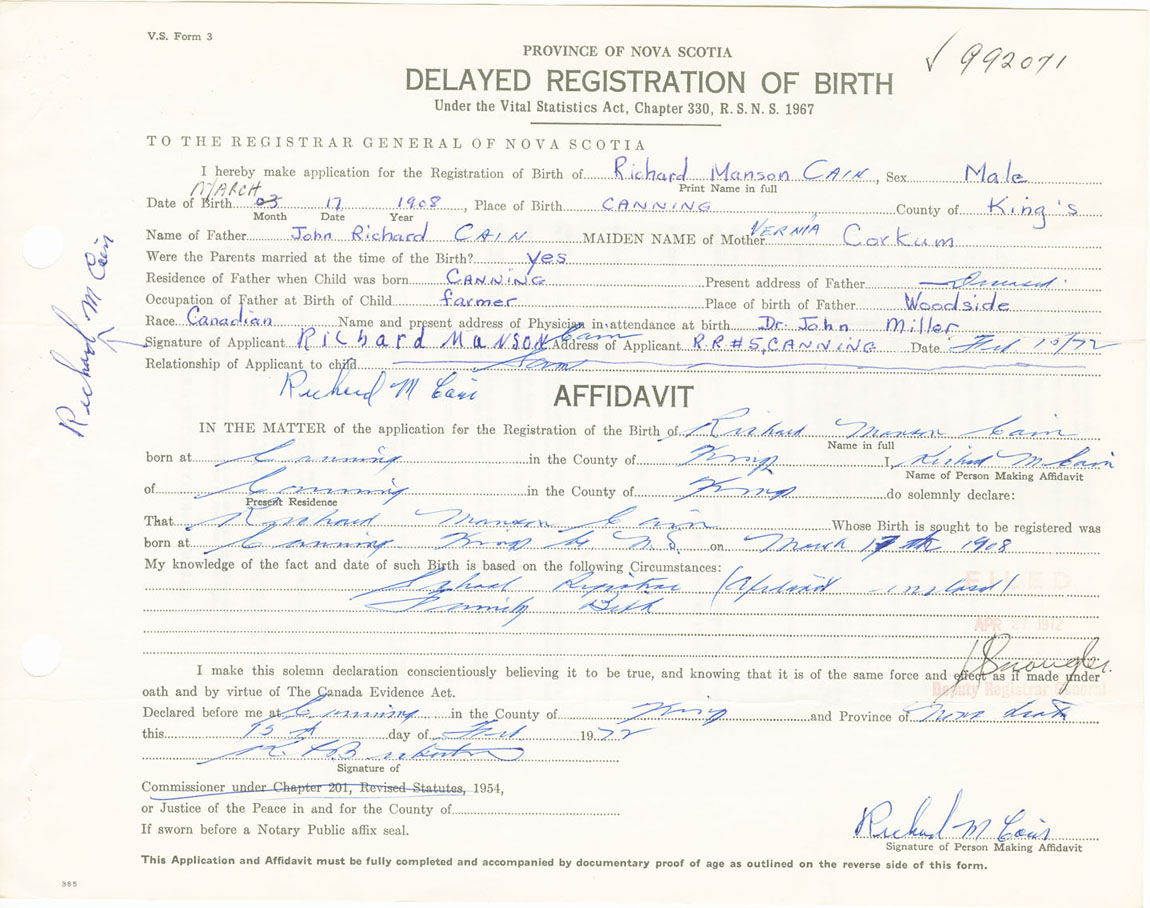 V.S. Form 3
PROVINCE OF NOVA SCOTIA
✓ 992071
DELAYED REGISTRATION OF BIRTH
Under the Vital Statistics Act, Chapter 330, R. S. N. S. 1967
TO THE REGISTRAR GENERAL OF NOVA SCOTIA
I hereby make application for the Registration of Birth of Richard Manson CAIN, Sex Male
Print Name in full
MARCH
Date of Birth 03 17 1908, Place of Birth CANNING County of King's
Month Date Year
Name of Father John Richard CAIN MAIDEN NAME of Mother VERNIA Corkum
Were the Parents married at the time of the Birth? yes
Residence of Father when Child was born CANNING Present address of Father Deceased
Occupation of Father at Birth of Child farmer Place of birth of Father Woodside
Race Canadian Name and present address of Physician in attendance at birth Dr. John Miller
Signature of Applicant Richard Manson Cain Address of Applicant R.R #5, CANNING Date Feb 15/72
Relationship of Applicant to child
Richard M Cain
Richard M Cain
AFFIDAVIT
IN THE MATTER of the application for the Registration of the Birth of Richard Manson Cain
Name in full
born at Canning in the County of Kings I, Richard M Cain
Name of Person Making Affidavit
of Canning in the County of Kings do solemnly declare:
Present Residence
That Richard Manson Cain Whose Birth is sought to be registered was
born at Canning Kings Co. N.S. on March 17th 1908
My knowledge of the fact and date of such Birth is based on the following Circumstances:
School Register
Family
FILED
APR 27 1972
I make this solemn declaration conscientiously believing it to be true, and knowing that it is of the same force and effect as if made under
oath and by virtue of The Canada Evidence Act.
Deputy Registrar General
Declared before me at Canning in the County of Kings and Province of Nova Scotia
this 15th day of Feb 1972
Signature of
Commissioner under Chapter 201, Revised Statutes, 1954,
or Justice of the Peace in and for the County of
If sworn before a Notary Public affix seal.
Richard M Cain
Signature of Person Making Affidavit
This Application and Affidavit must be fully completed and accompanied by documentary proof of age as outlined on the reverse side of this form.
385